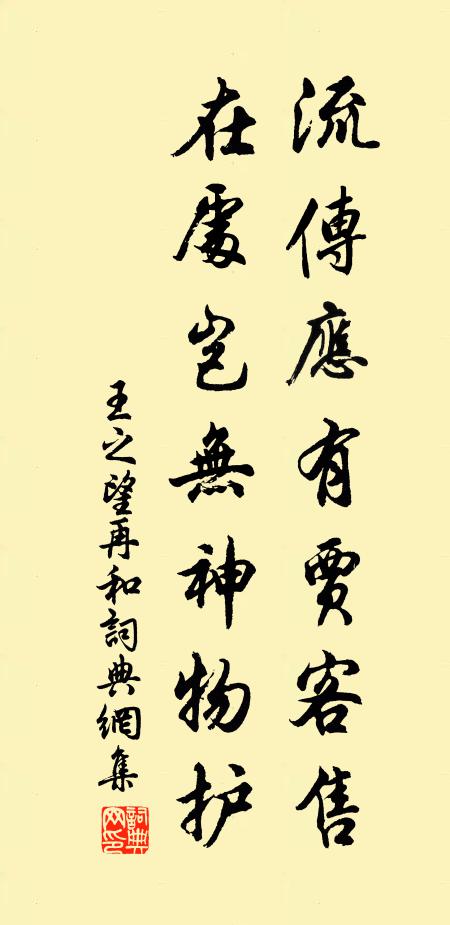 流傳應有賈客售
在處豈無神物护
王之望再和詞典網集
詞典网印